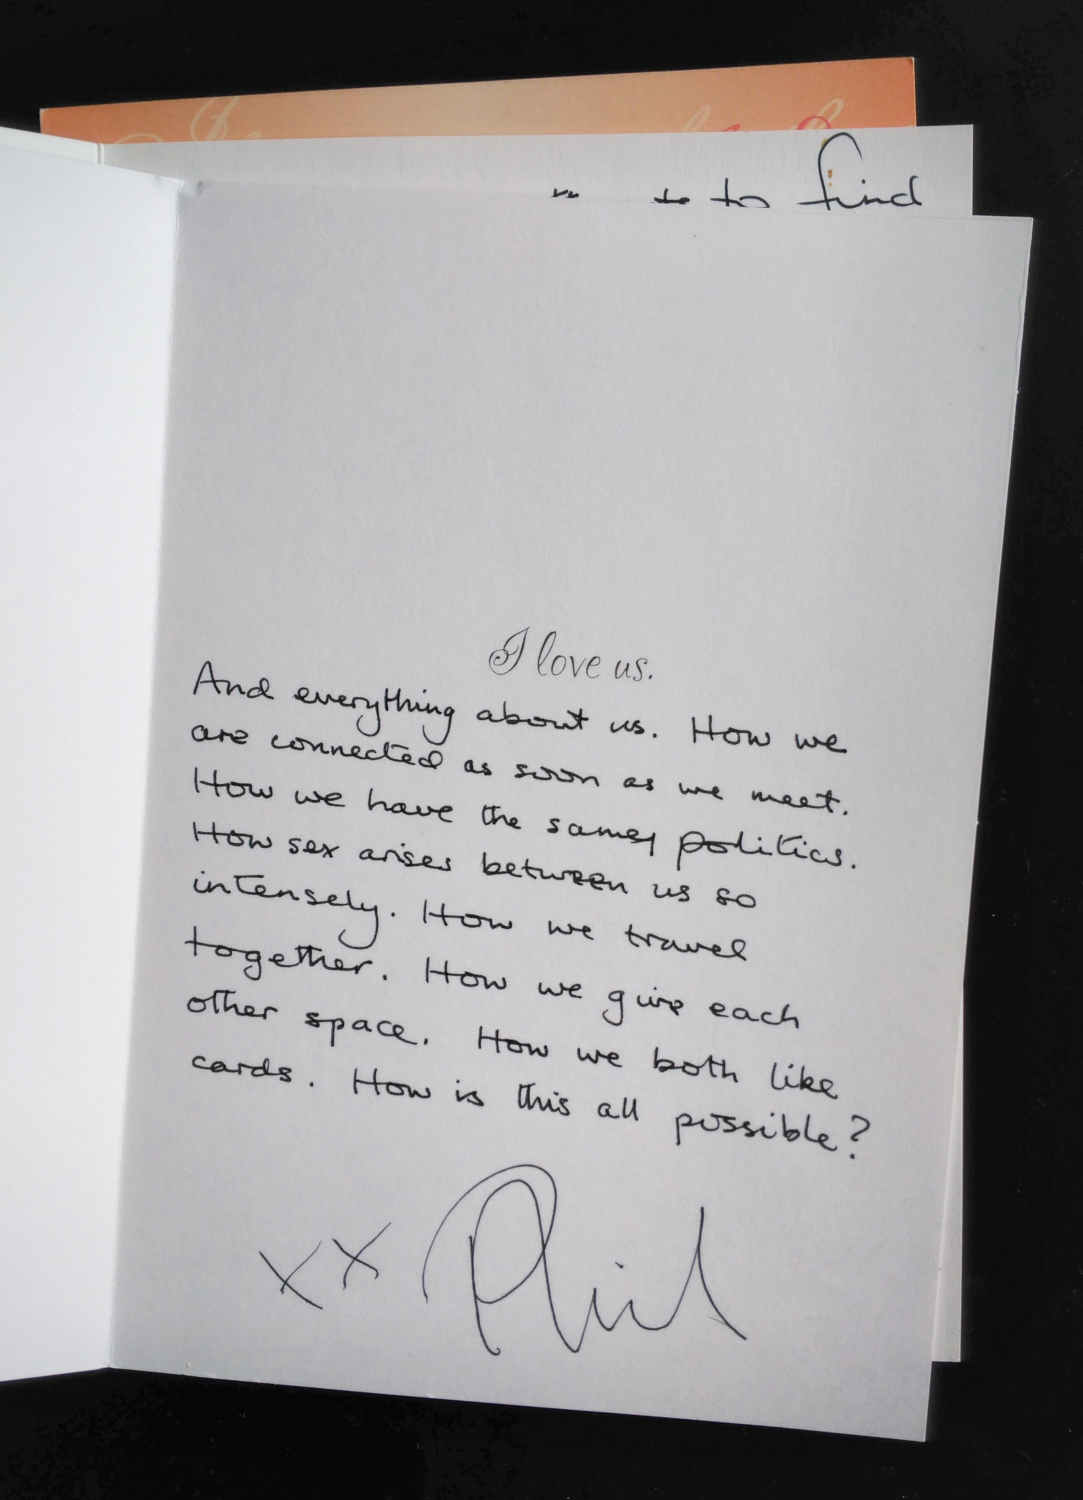 to find
I love us.
And everything about us. How we
are connected as soon as we meet.
How we have the same politics.
How sex arises between us so
intensely. How we travel
together. How we give each
other space. How we both like
cards. How is this all possible?
xx Phil